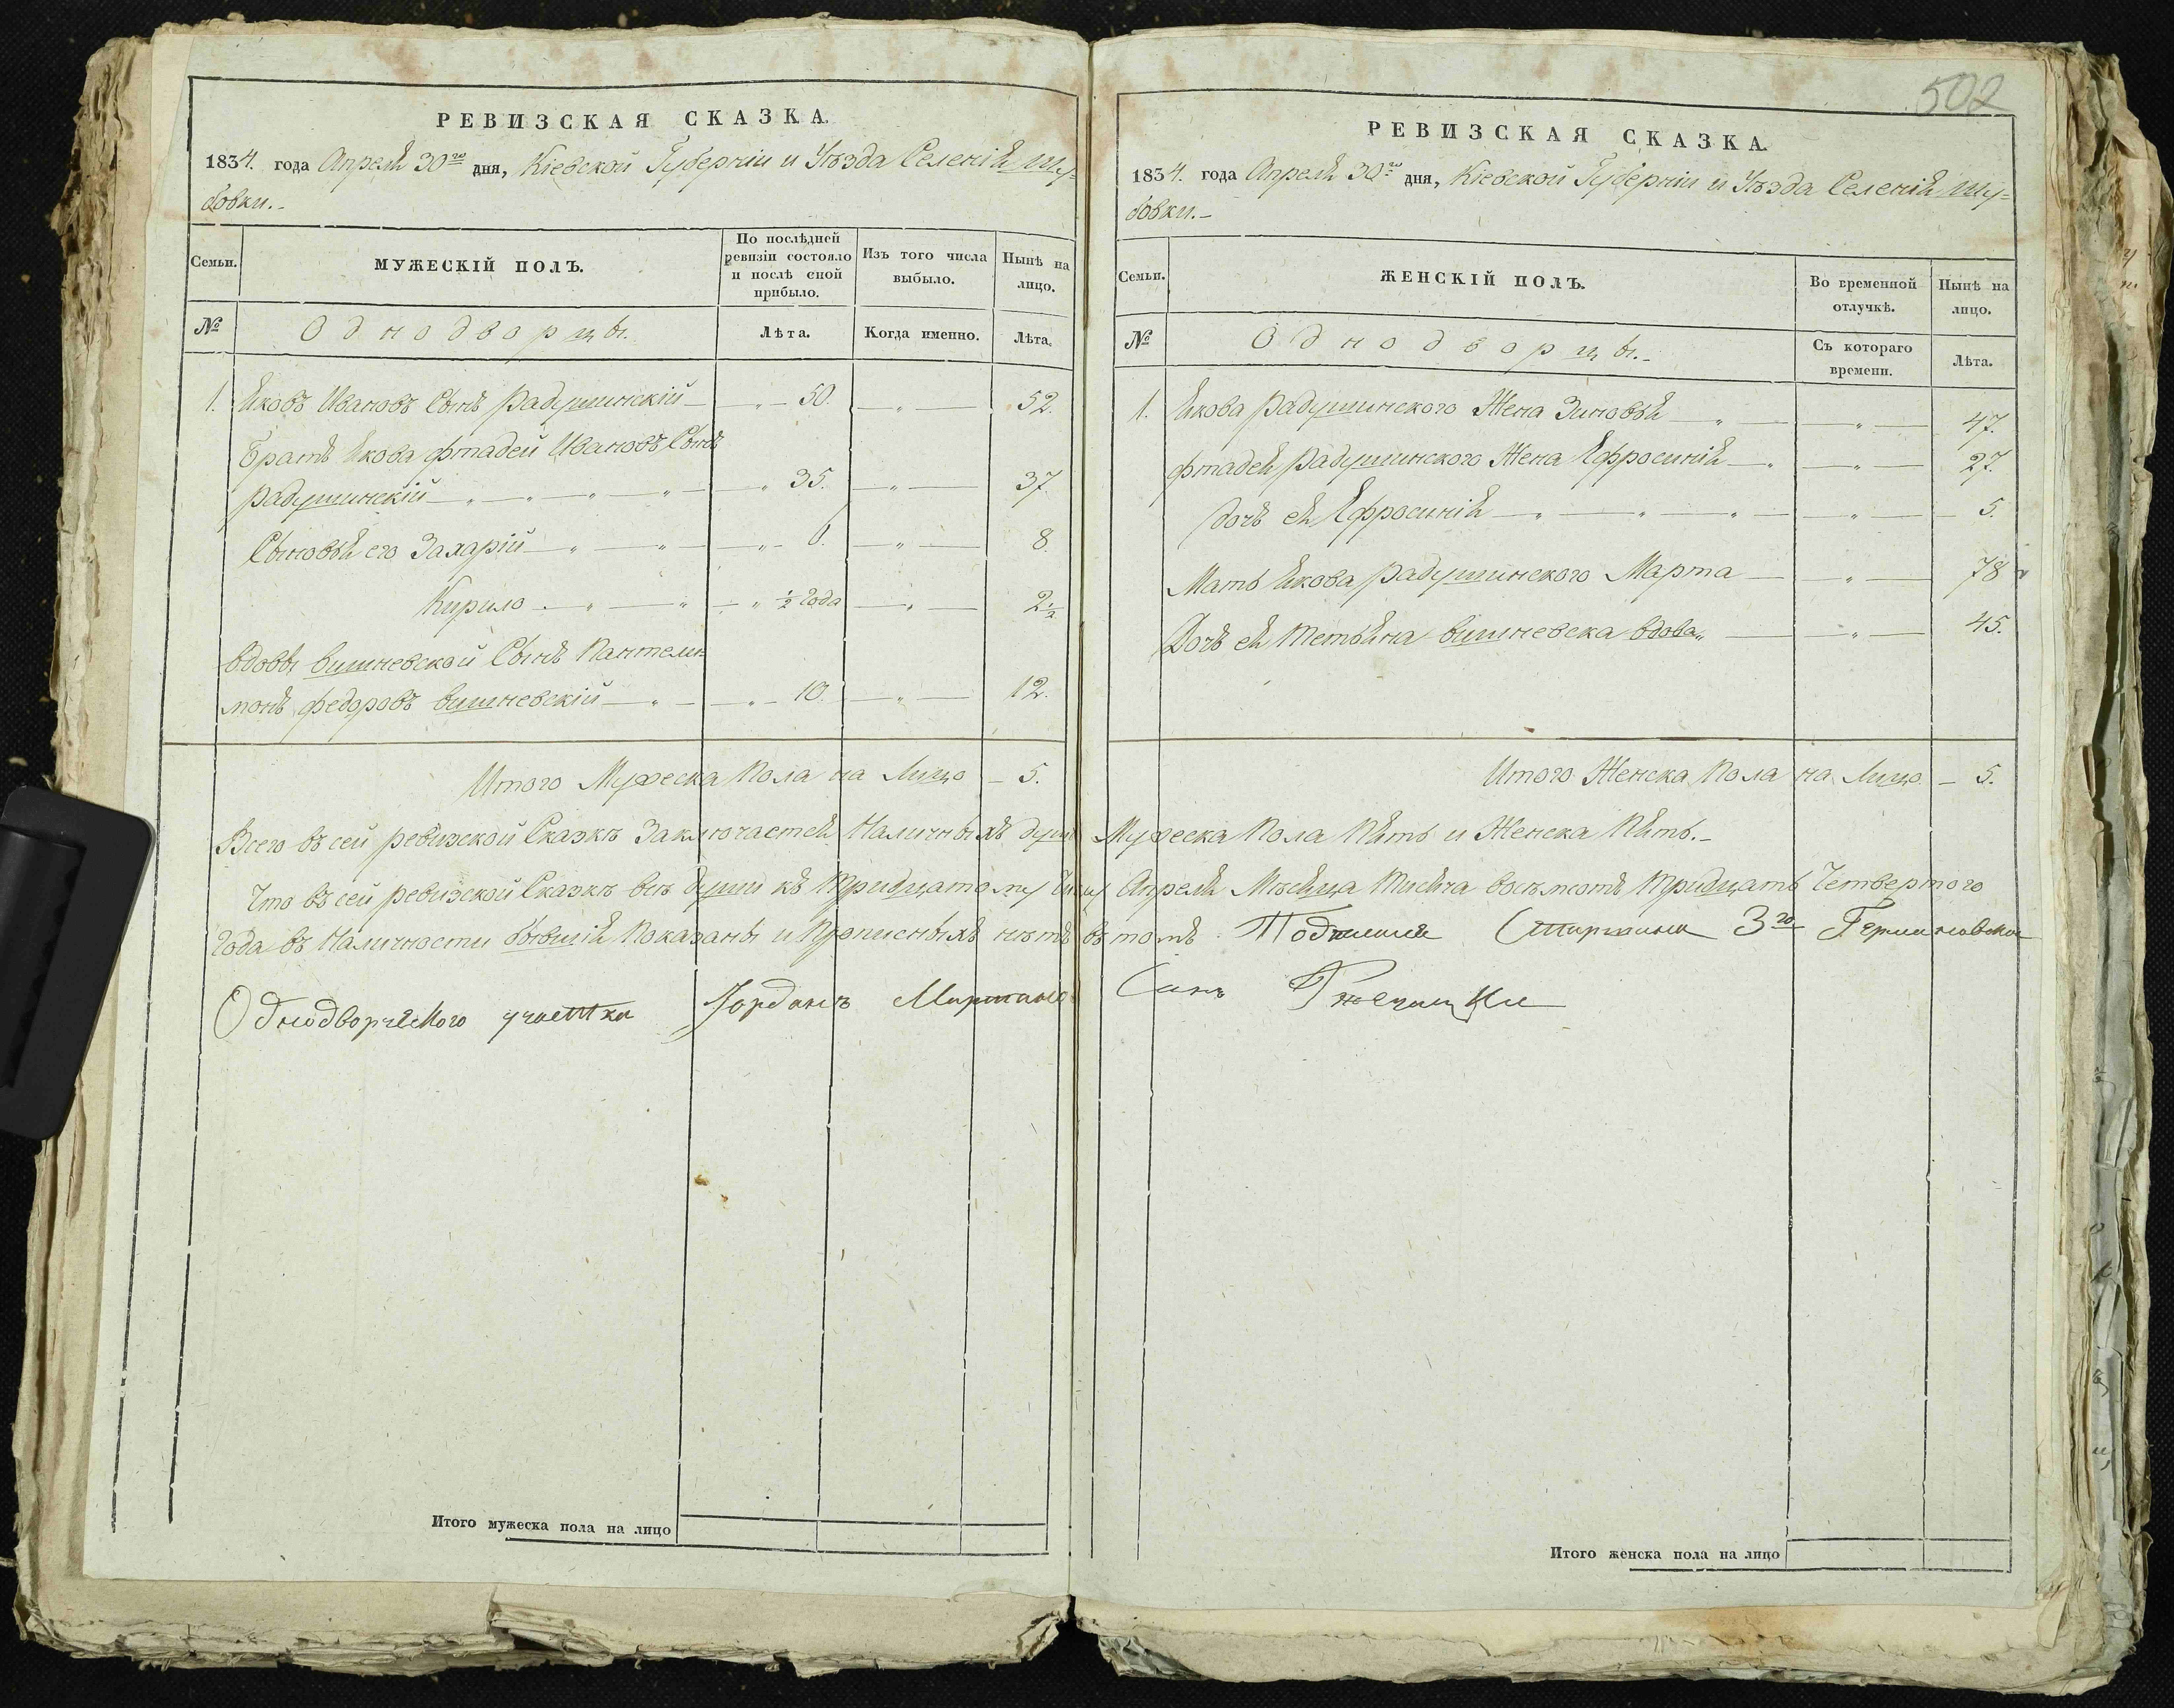 502
РЕВИЗСКАЯ СКАЗКА.
1834. года Апреля 30го дня, Кіевской Губерніи и Уѣзда Селенія Шу-
бовки.-
Семьи. МУЖЕСКІЙ ПОЛЪ. По послѣдней ревизіи состояло и послѣ оной прибыло. Изъ того числа выбыло. Нынѣ на лицо.
№ Однодворцы. Лѣта. Когда именно. Лѣта.
1. Яковъ Ивановъ Сынъ Радушинскій — „ — 50. — „ — 52.
Братъ Якова Фтадей Ивановъ Сынъ
Радушинскій — „ — 35. — „ — 37.
Сыновья его Захарій — „ — 6. — „ — 8.
Кирило — „ — ½ Года — „ — 2½
Вдовы Вишневской Сынъ Пантели-
монъ Федоровъ Вишневскій — „ — 10. — „ — 12.
Итого Мужеска Пола на Лицо — 5.
РЕВИЗСКАЯ СКАЗКА.
1834. года Апреля 30го дня, Кіевской Губерніи и Уѣзда Селенія Шу-
бовки.-
Семьи. ЖЕНСКІЙ ПОЛЪ. Во временной отлучкѣ. Нынѣ на лицо.
№ Однодворцы.- Съ котораго времени. Лѣта.
1. Якова Радушинского Жена Зиновья — „ — 47.
Фтадея Радушинского Жена Ефросинія — „ — 27.
Дочь ея Ефросинія — „ — 5.
Мать Якова Радушинского Марта — „ — 78
Дочь ея Тетьяна Вишневска вдова „ — „ — 45.
Итого Женска Пола на Лицо — 5.
Всего въ сей ревизской Сказкѣ Заключается Наличныхъ душъ Мужеска Пола Пять и Женска Пять.-
Что въ сей ревизской Сказкѣ всѣ души къ Тридцатому Числу Апреля Мѣсяца Тисяча восѣмсотъ Тридцать Четвертого
Года въ Наличности бывшія Показаны и Прописныхъ нѣтъ въ томъ Подписался Старшина 3го Германовско
Однодворческого участка Іорданъ Мартино Синъ
Итого мужеска пола на лицо
Итого женска пола на лицо